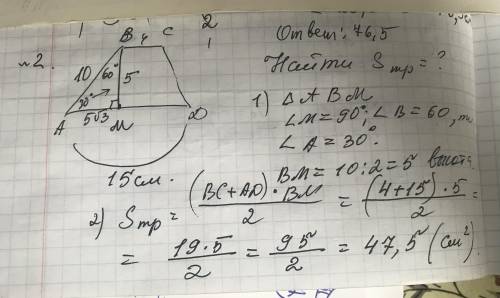 2
Ответ: 76,5
№2.
B 4 C
10 60° 5
30°
A 5√3 M D
15 см.
Найти Sтр = ?
1) △ABM
∠M = 90°; ∠B = 60, т
∠A = 30°.
BM = 10:2 = 5 высота
2) Sтр = (BC + AD) · BM / 2 = (4 + 15) · 5 / 2 =
= 19 · 5 / 2 = 95 / 2 = 47,5 (см²)